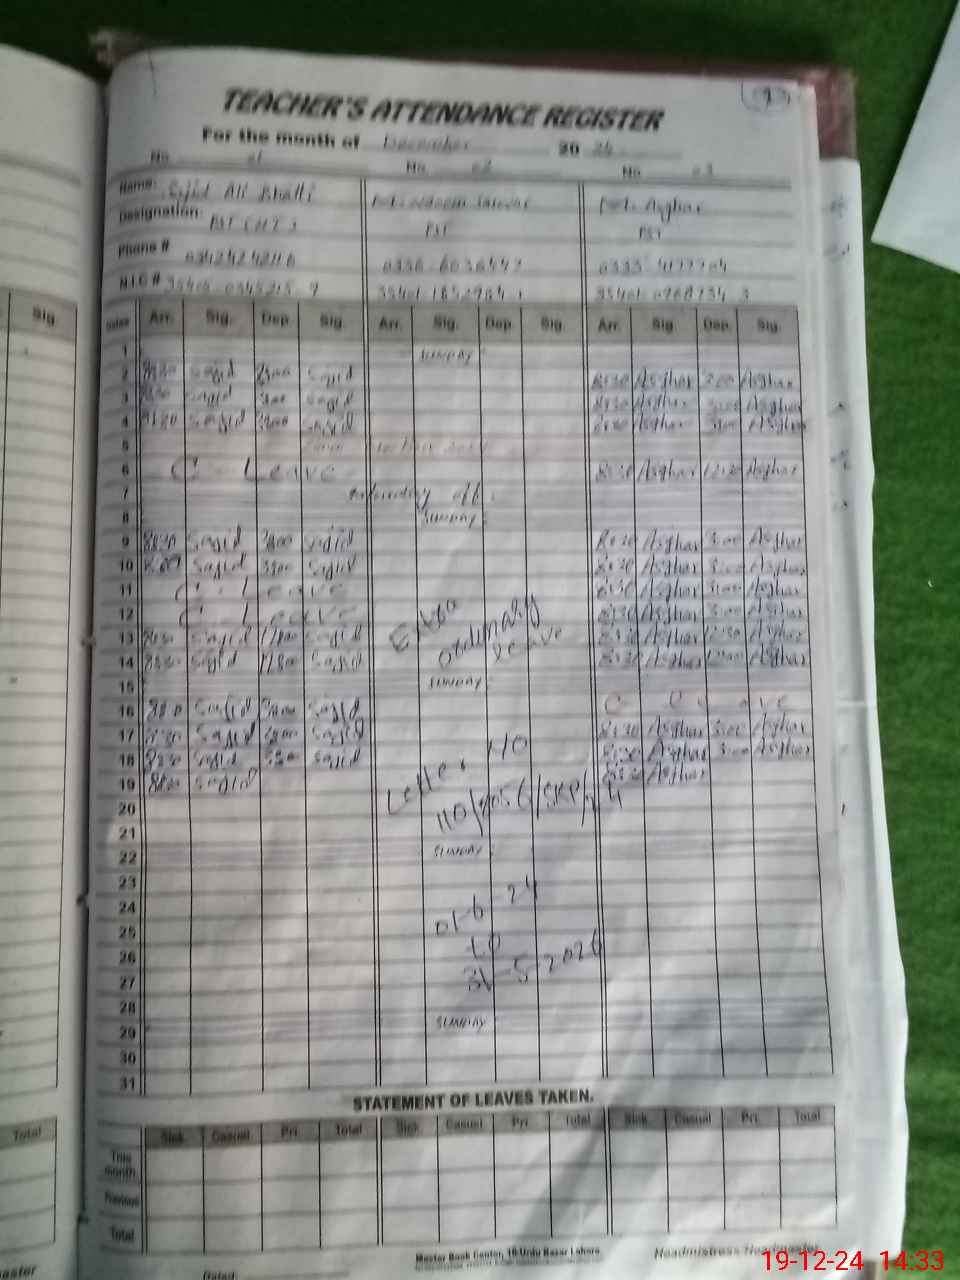 TEACHER'S ATTENDANCE REGISTER
For the month of December 20 24
No. 01 No. 02 No. 03
Name: Sajid Ali Bhatti M. Nadeem Sarwar M. Asghar
Designation: PST PST PST
Phone # 03424242116 0336-6036447 0333-4177704
N.I.C #
Dates Arr. Sig. Dep. Sig. Arr. Sig. Dep. Sig. Arr. Sig. Dep. Sig.
1 SUNDAY
2 8:30 Sajid 3:00 Sajid 8:30 Asghar 3:00 Asghar
3 8:30 Sajid 3:00 Sajid 8:30 Asghar 3:00 Asghar
4 8:30 Sajid 3:00 Sajid 8:30 Asghar 3:00 Asghar
5
6 C. Leave 8:30 Asghar 12:30 Asghar
7 Saturday off.
8 SUNDAY
9 8:30 Sajid 3:00 Sajid 8:30 Asghar 3:00 Asghar
10 Sajid 3:00 Sajid 8:30 Asghar 3:00 Asghar
11 C. Leave 8:30 Asghar 3:00 Asghar
12 C. Leave 8:30 Asghar 3:00 Asghar
13 8:30 Sajid Sajid Extra 8:30 Asghar 12:30 Asghar
14 8:30 Sajid Sajid Ordinary leave 8:30 Asghar 12:00 Asghar
15 SUNDAY
16 8:30 Sajid 3:00 Sajid C Leave
17 8:30 Sajid 3:00 Sajid 8:30 Asghar 3:00 Asghar
18 8:30 Sajid 3:00 Sajid Letter NO 8:30 Asghar 3:00 Asghar
19 8:30 Sajid 8:30 Asghar
20 110/2056/SKP/24
21
22 SUNDAY
23
24 01-6-24
25
26 to
27 31-5-2026
28
29 SUNDAY
30
31
STATEMENT OF LEAVES TAKEN.
Sick Casual Pri. Total Sick Casual Pri. Total Sick Casual Pri. Total
This month
Previous
Total
Master Book Center, 16 Urdu Bazar Lahore.
Headmistress/Headmaster
Dated
Sig.
Total
19-12-24 14:33